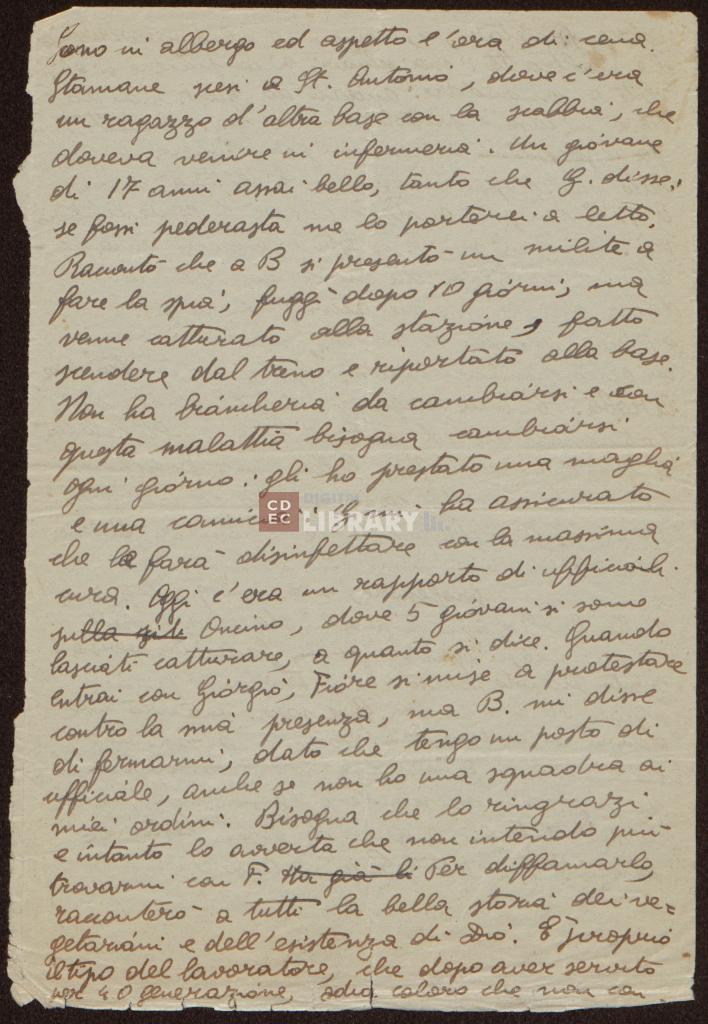 Sono in albergo ed aspetto l'ora di cena.
Stamane scesi a St. Antonio, dove c'era
un ragazzo d'altra base con la scabbia, che
doveva venire in infermeria. Un giovane
di 17 anni assai bello, tanto che G. disse:
se fossi pederasta me lo porterei a letto.
Raccontò che a B si presentò un milite a
fare la spia, fuggì dopo 10 giorni, ma
venne catturato alla stazione, fatto
scendere dal treno e riportato alla base.
Non ha biancheria da cambiarsi e con
questa malattia bisogna cambiarsi
ogni giorno: gli ho prestato una maglia
e una camicia. G. mi ha assicurato
che le farà disinfettare con la massima
cura. Oggi c'era un rapporto di ufficiali.
sulla Oncino, dove 5 giovani si sono
lasciati catturare, a quanto si dice. Quando
entrai con Giorgio, Fiore si mise a protestare
contro la mia presenza, ma B. mi disse
di fermarmi, dato che tengo un posto di
ufficiale, anche se non ho una squadra ai
miei ordini. Bisogna che lo ringrazi
e intanto lo avverta che non intendo più
trovarmi con F. Ha già li Per diffamarlo,
racconterò a tutti la bella storia dei ve=
getariani e dell'esistenza di Dio. È proprio
il tipo del lavoratore, che dopo aver servito
per 40 generazione, odia coloro che non con
CDEC DIGITAL LIBRARY